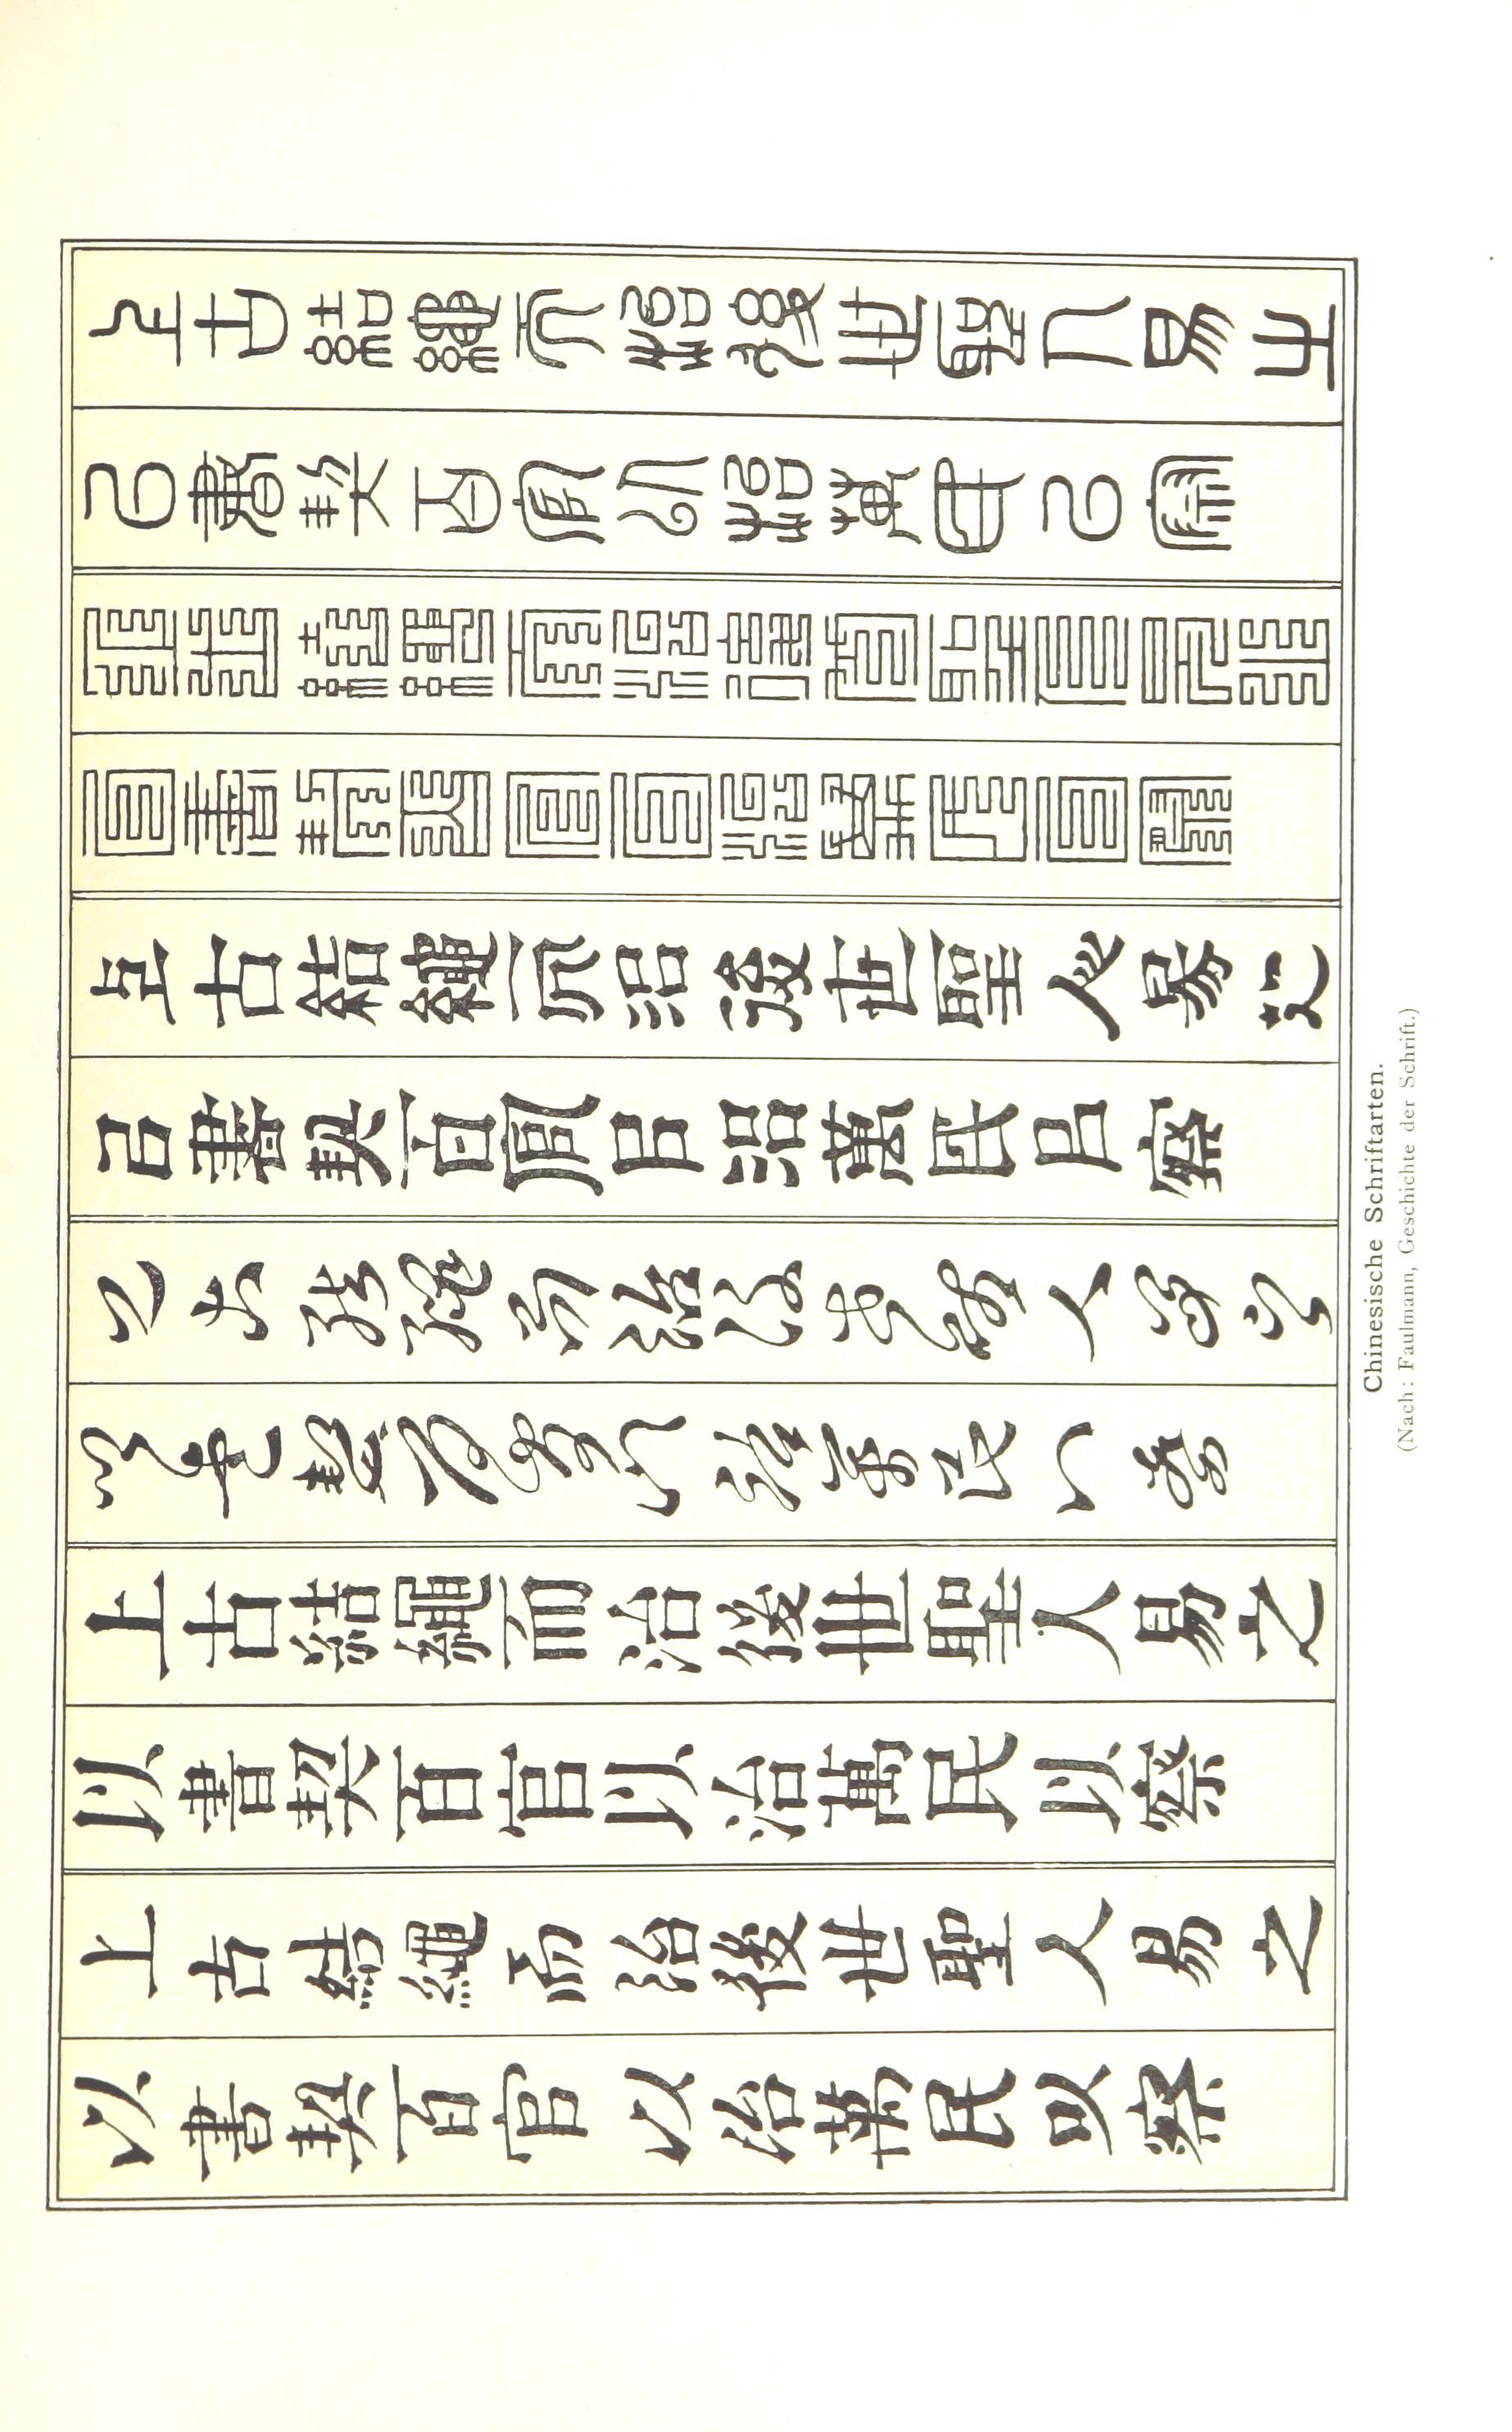 上古結繩而治後世聖人易之
以書契百官以治萬民以察
上古結繩而治後世聖人易之
以書契百官以治萬民以察
上古結繩而治後世聖人易之
以書契百官以治萬民以察
上古結繩而治後世聖人易之
以書契百官以治萬民以察
上古結繩而治後世聖人易之
以書契百官以治萬民以察
上古結繩而治後世聖人易之
以書契百官以治萬民以察
Chinesische Schriftarten.
(Nach: Faulmann, Geschichte der Schrift.)